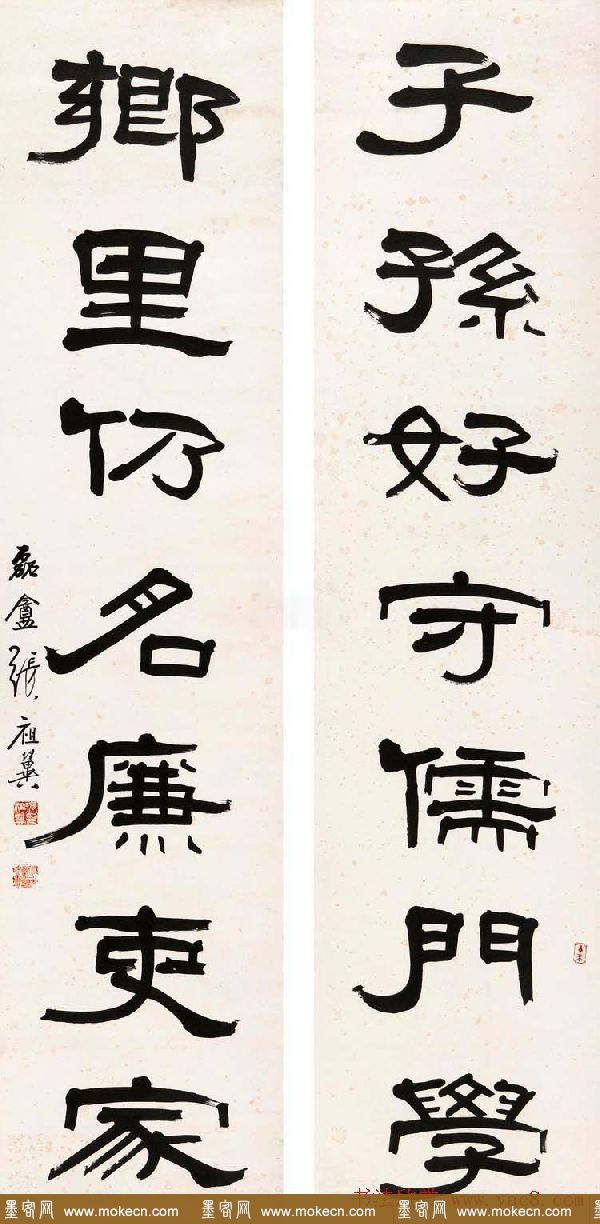 子孫好守儒門學
鄉里仍名廉吏家
磊盦張祖翼
墨客网 www.mokecn.com 墨客网 www.mokecn.com 墨客网 www.mokecn.com